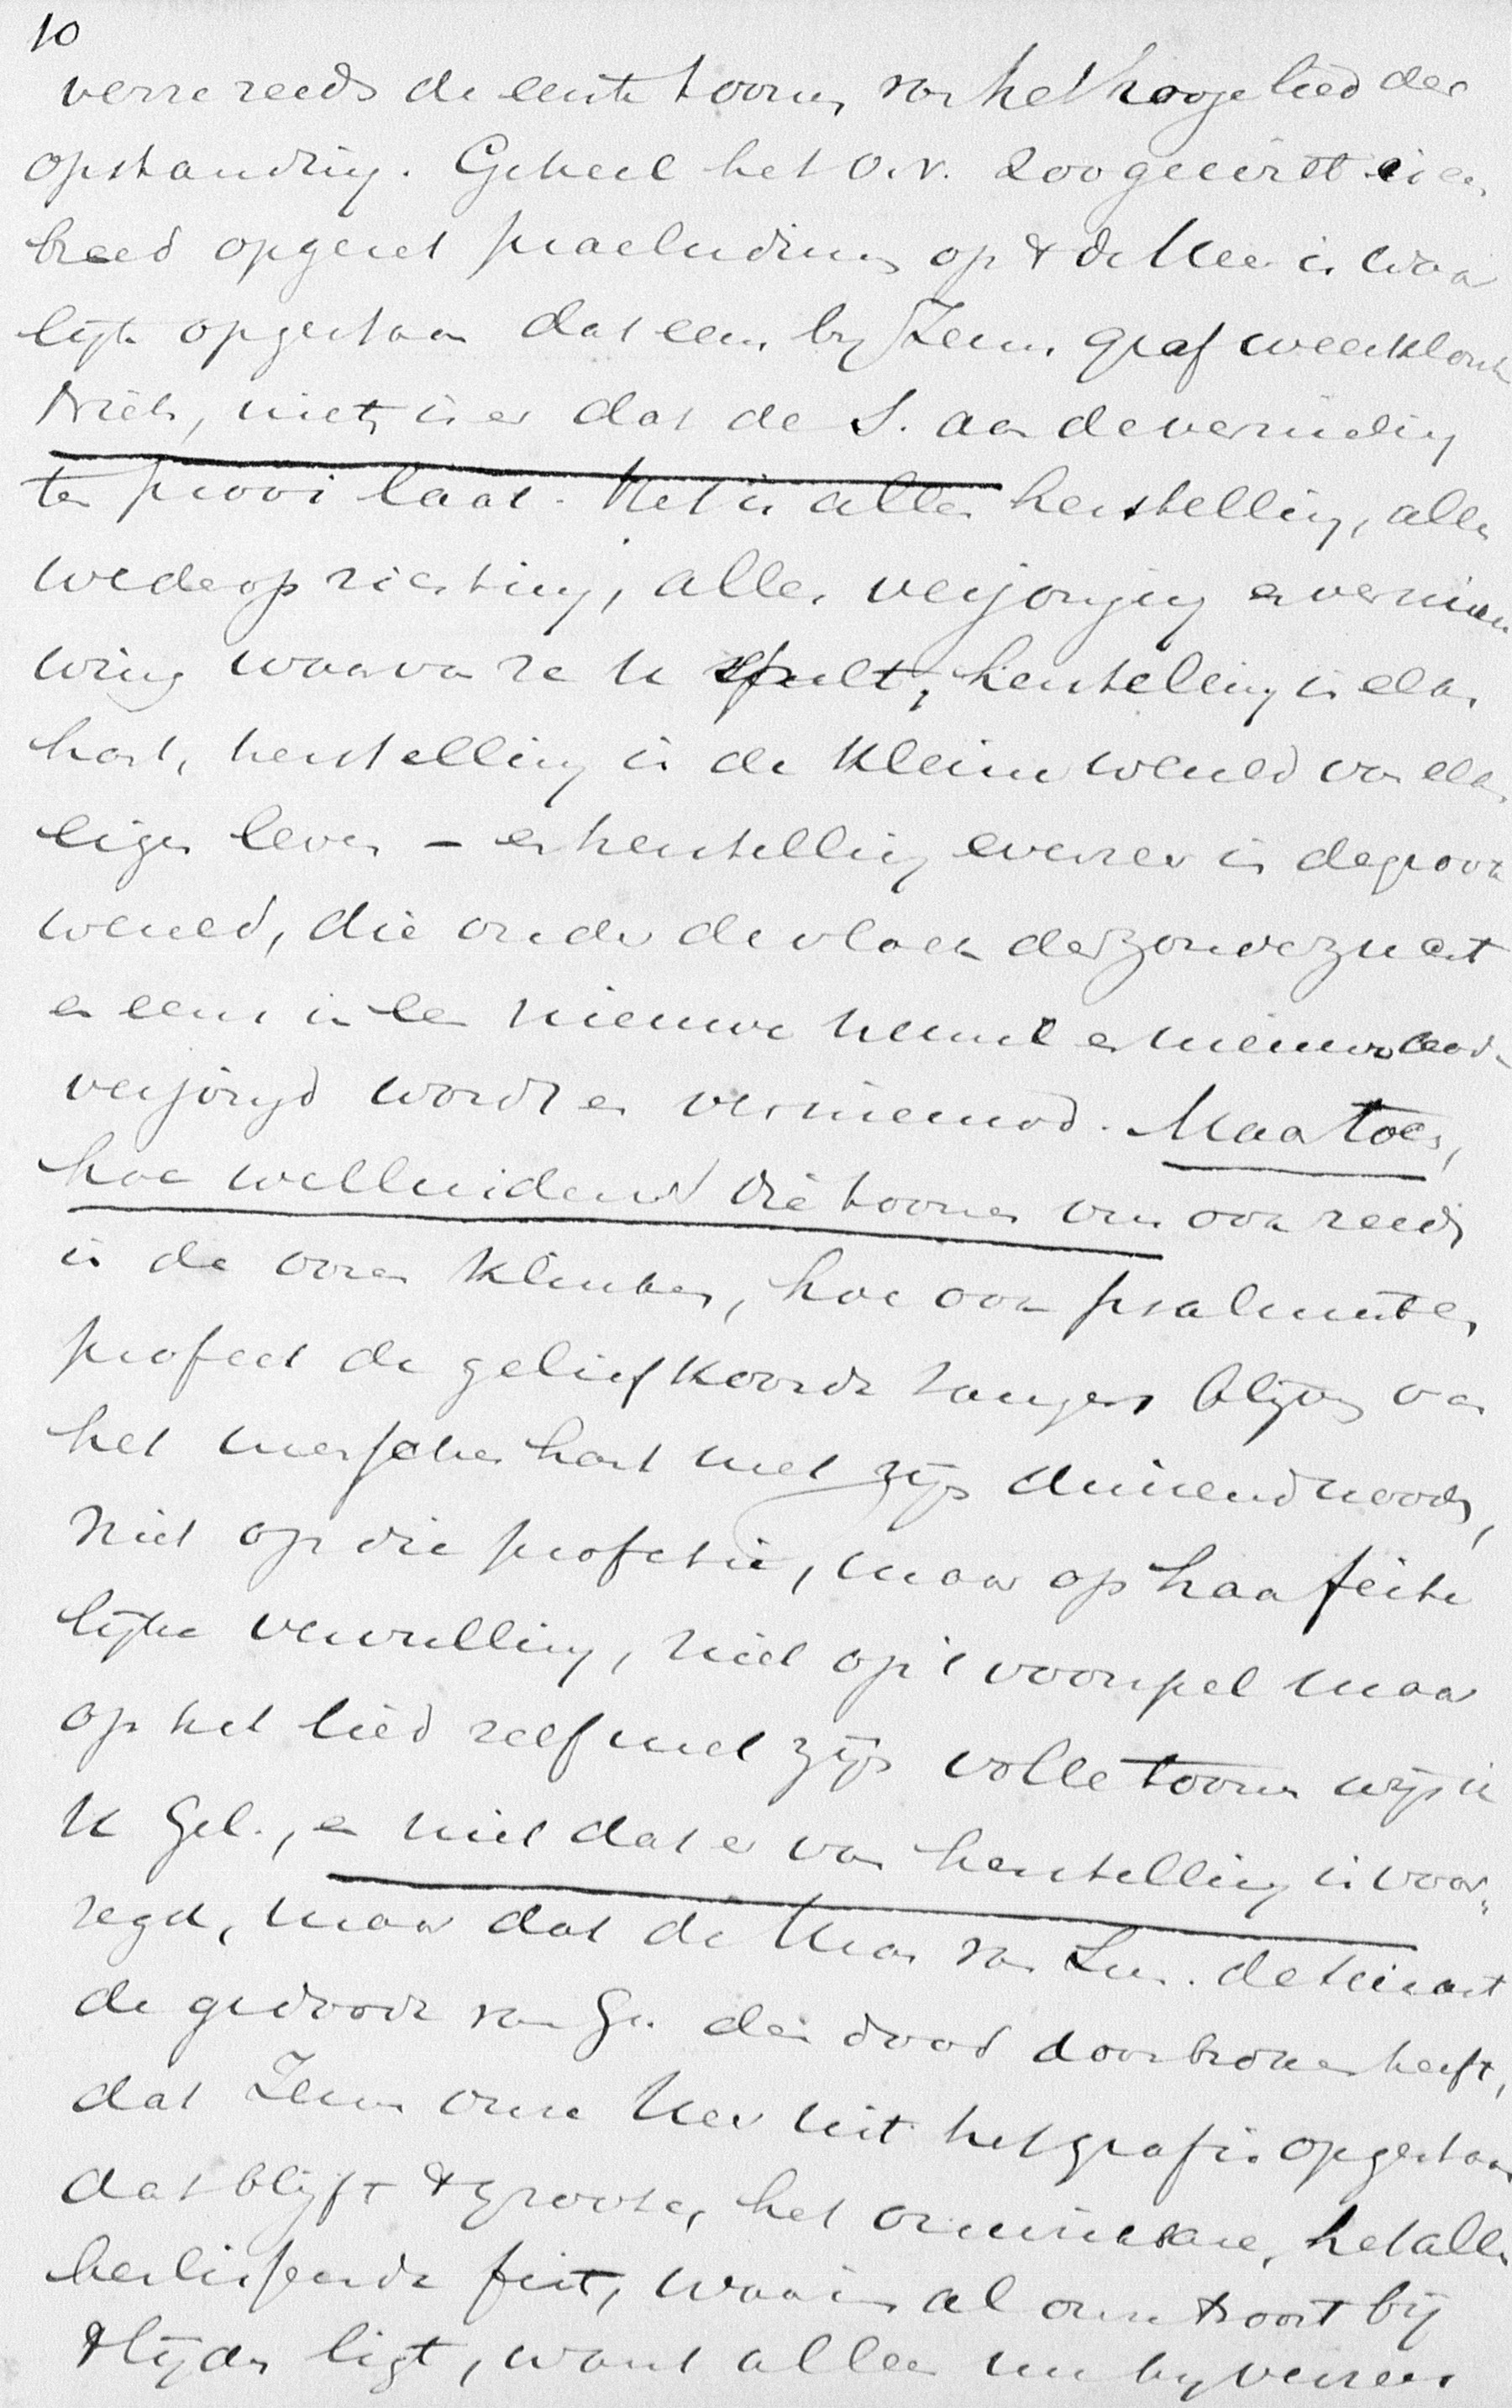 10
verre reeds de eerste toonen van het hooge lied der
opstanding. Geheel het O.V. zoo geeindt een
breed opgezet praeludium op 't de Heer is waar
lijk opgestaan dat eens by Jezus graf weerklonk
Niets, niets is er dat de S. aan de vernieling
ter prooi laat. Het is alles herstelling, alles
wederoprichting, alles verjonging en vernieu
wing waarvan ze u spelt, herstelling in elks
hart, herstelling in de kleine wereld van elks
eigen leven – en herstelling evenzeer in de groote
wereld, die onder de vloek der zonde zucht
en eens in een nieuwe hemel en nieuwe aarde
verjongd wordt en vernieuwd. Maar toch,
hoe welluidend die toonen ons ook reeds
in de ooren klinken, hoe ook psalmist en
profeet de geliefkoosde zangers blijven van
het menschen hart met zijn duizend nooden,
Niet op die profetie, maar op haar feite
lijke vervulling, niet op 't voorspel maar
op het lied zelf met zijn volle toonen wijs ik
U Gel., en niet dat er van herstelling is voor-
zegd, maar dat de Man van Sm. de
de gedoode van Go. den dood doorbroken heeft,
dat Jezus onze Heer uit het graf is opgestaan
dat blijft 't groote, het onmisbare, het alles
beslissende feit, waarin al onze troost bij
't lijden ligt, want alleen nu by